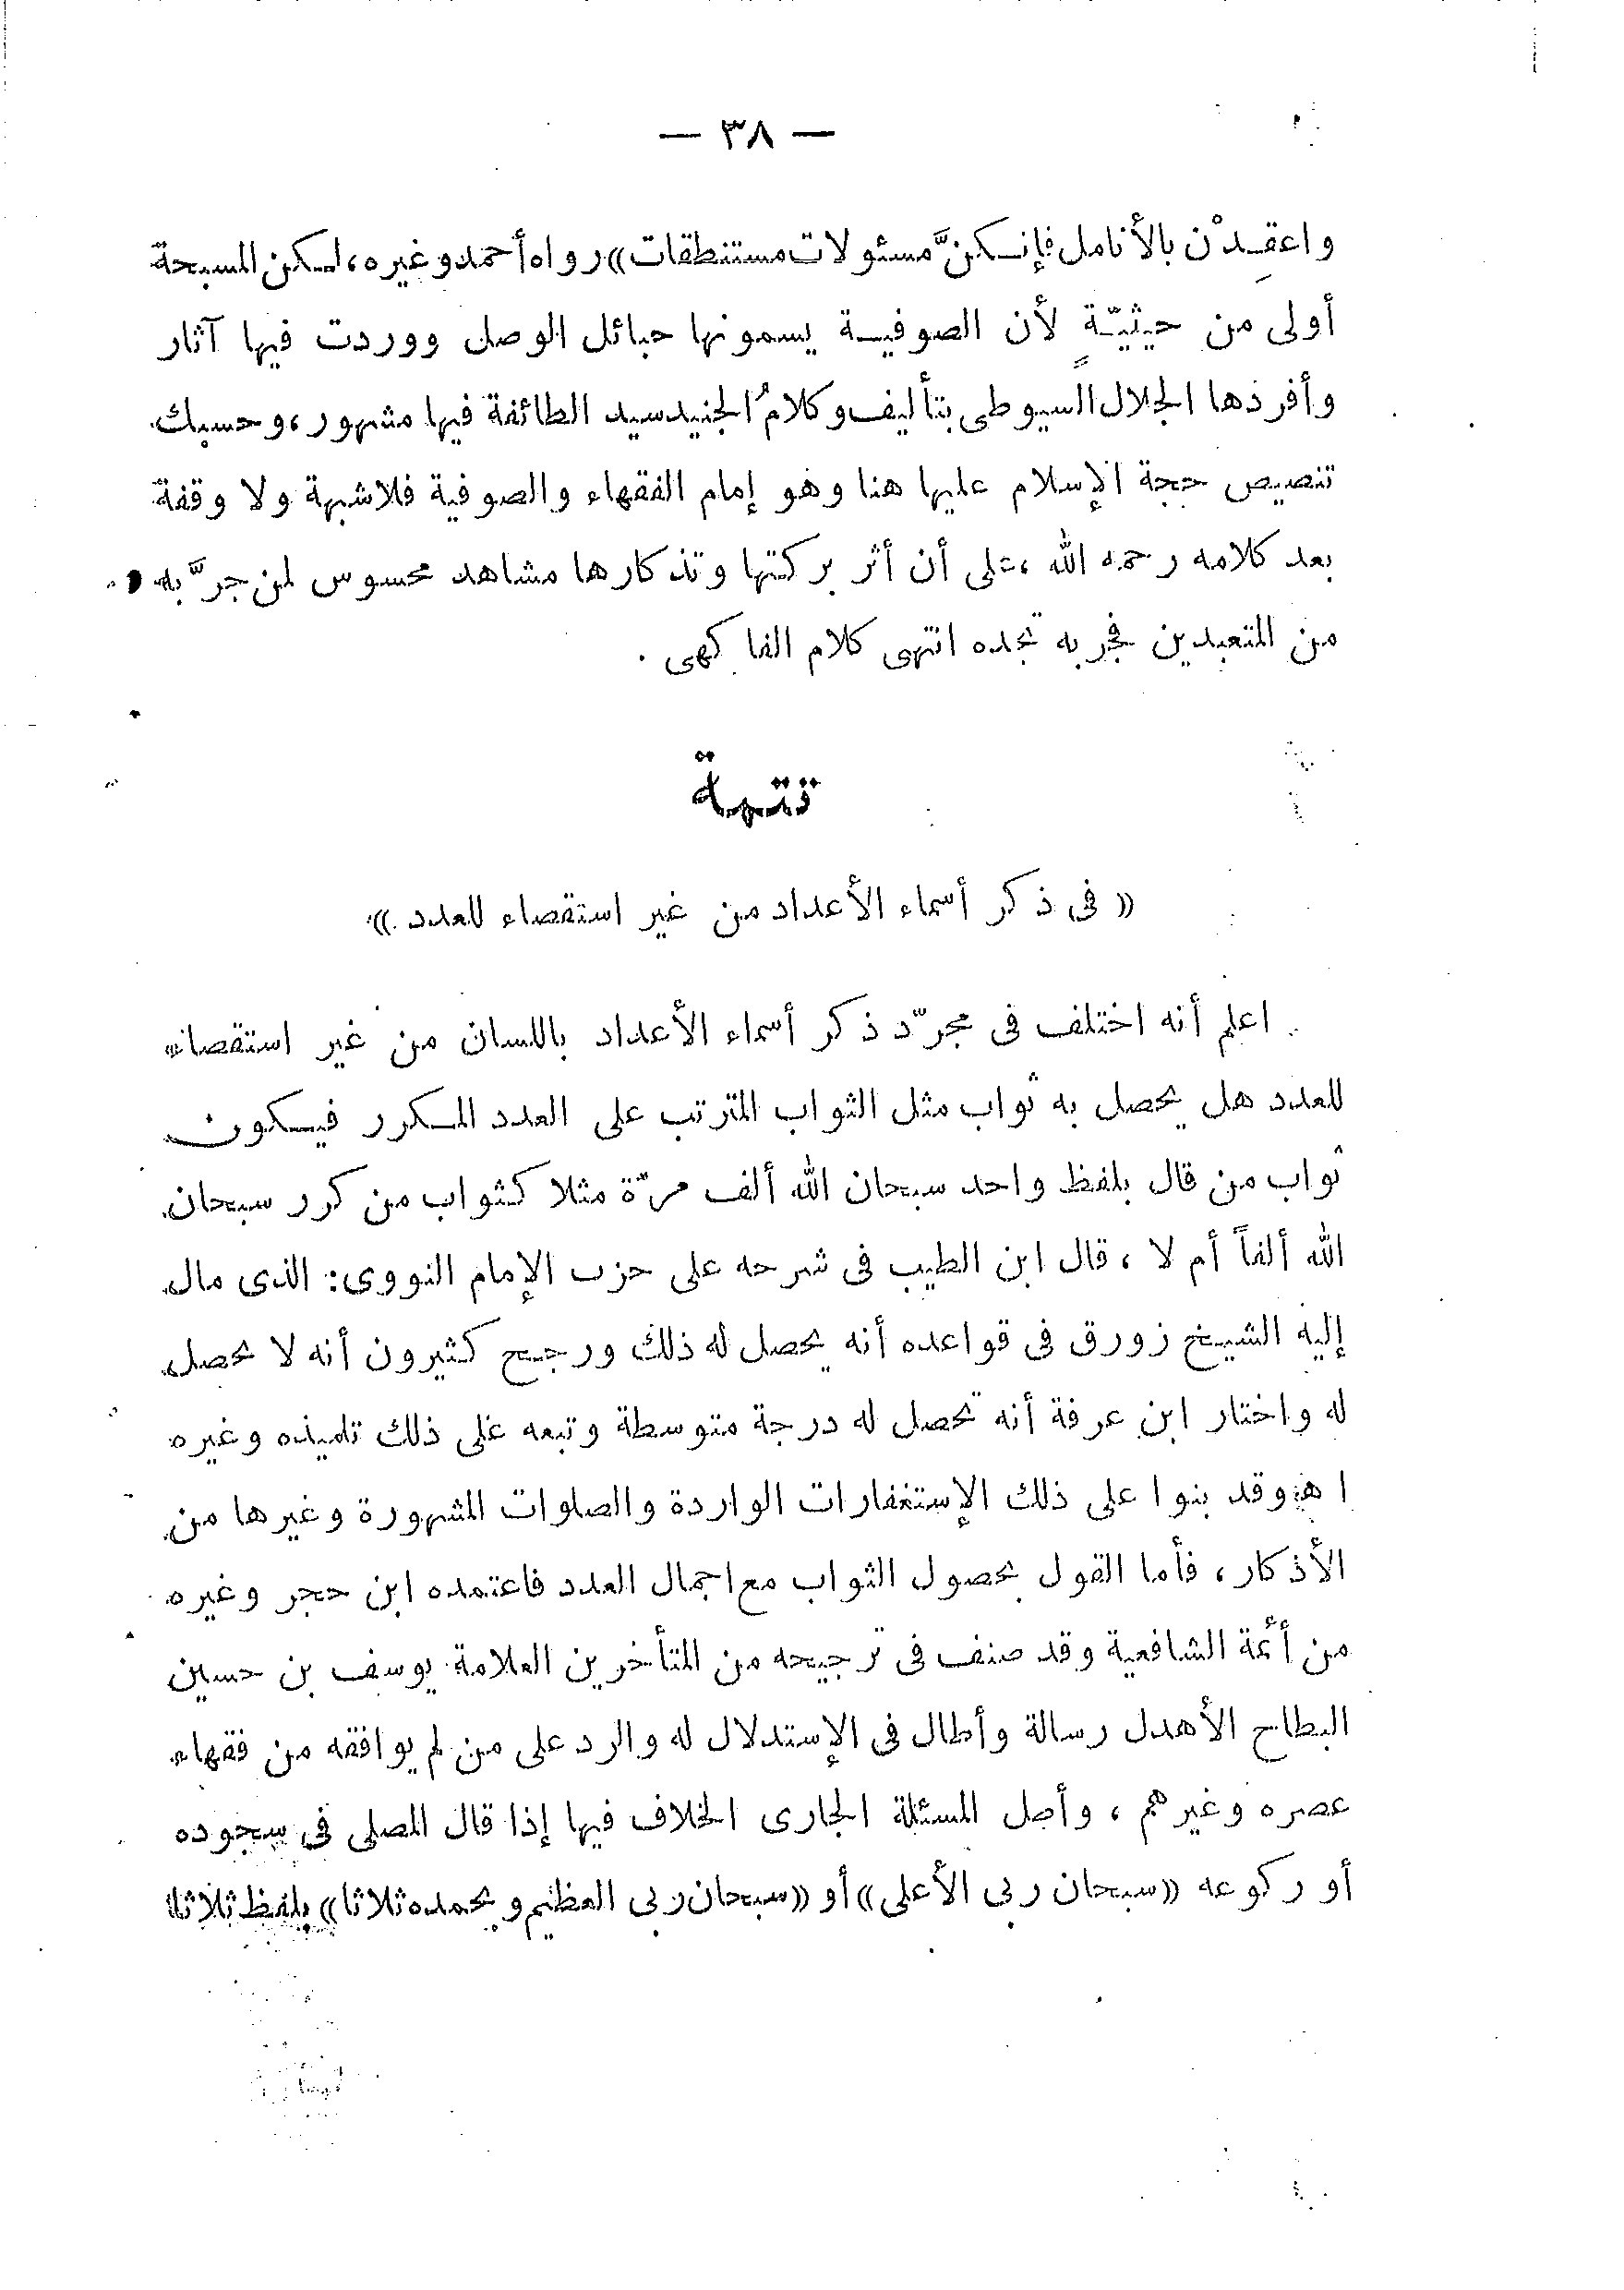 — ٣٨ —
واعقِدْن بالأنامل فإنكنَّ مسئولات مستنطقات» رواه أحمد وغيره، لكن السبحة
أولى من حيثيّةٍ لأن الصوفية يسمونها حبائل الوصل ووردت فيها آثار
وأفردها الجلال السيوطى بتأليف وكلامُ الجنيد سيد الطائفة فيها مشهور، وحسبك
تنصيص حجة الإسلام عليها هنا وهو إمام الفقهاء والصوفية فلاشبهة ولا وقفة
بعد كلامه رحمه الله ،على أن أثر بركتها وتذكارها مشاهد محسوس لمن جرَّ به
من المتعبدين فجربه تجده انتهى كلام الفاكهى .
تتمة
« فى ذكر أسماء الأعداد من غير استقصاء للعدد »
اعلم أنه اختلف فى مجرّد ذكر أسماء الأعداد باللسان من غير استقصاء
للعدد هل يحصل به ثواب مثل الثواب المترتب على العدد المكرر فيكون
ثواب من قال بلفظ واحد سبحان الله ألف مرّة مثلا كثواب من كرر سبحان
الله ألفاً أم لا ، قال ابن الطيب فى شرحه على حزب الإمام النووى: الذى مال
إليه الشيخ زورق فى قواعده أنه يحصل له ذلك ورجح كثيرون أنه لا يحصل
له واختار ابن عرفة أنه تحصل له درجة متوسطة وتبعه على ذلك تلميذه وغيره
اهـ وقد بنوا على ذلك الإستغفارات الواردة والصلوات المشهورة وغيرها من
الأذكار، فأما القول بحصول الثواب مع اجمال العدد فاعتمده ابن حجر وغيره
من أئمة الشافعية وقد صنف فى ترجيحه من المتأخرين العلامة يوسف بن حسين
البطاح الأهدل رسالة وأطال فى الإستدلال له والرد على من لم يوافقه من فقهاء
عصره وغيرهم ، وأصل المسئلة الجارى الخلاف فيها إذا قال المصلى فى سجوده
أو ركوعه «سبحان ربى الأعلى» أو «سبحان ربى العظيم وبحمده ثلاثا» بلفظ ثلاثا